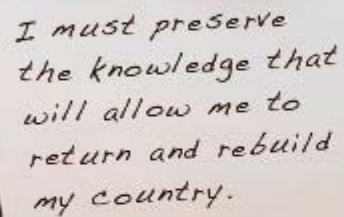 I must preserve
the knowledge that
will allow me to
return and rebuild
my country.